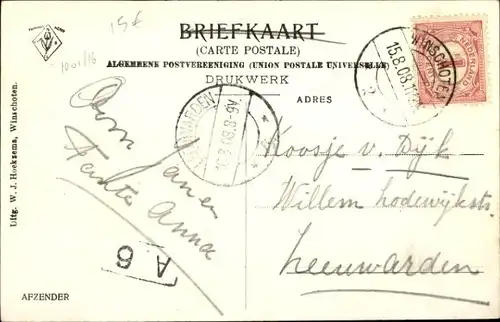 15 f
10 01/16
BRIEFKAART
(CARTE POSTALE)
ALGEMEENE POSTVEREENIGING (UNION POSTALE UNIVERSELLE)
DRUKWERK
ADRES
WINSCHOTEN
15.8.08
2
NEDERLAND
1
LEEUWARDEN
8-9V.
Oom
Tante Anna
A 6
Koosje v. Dijk
Willem Lodewijkstr.
Leeuwarden
Uitg. W. J. Hoeksema, Winschoten.
AFZENDER